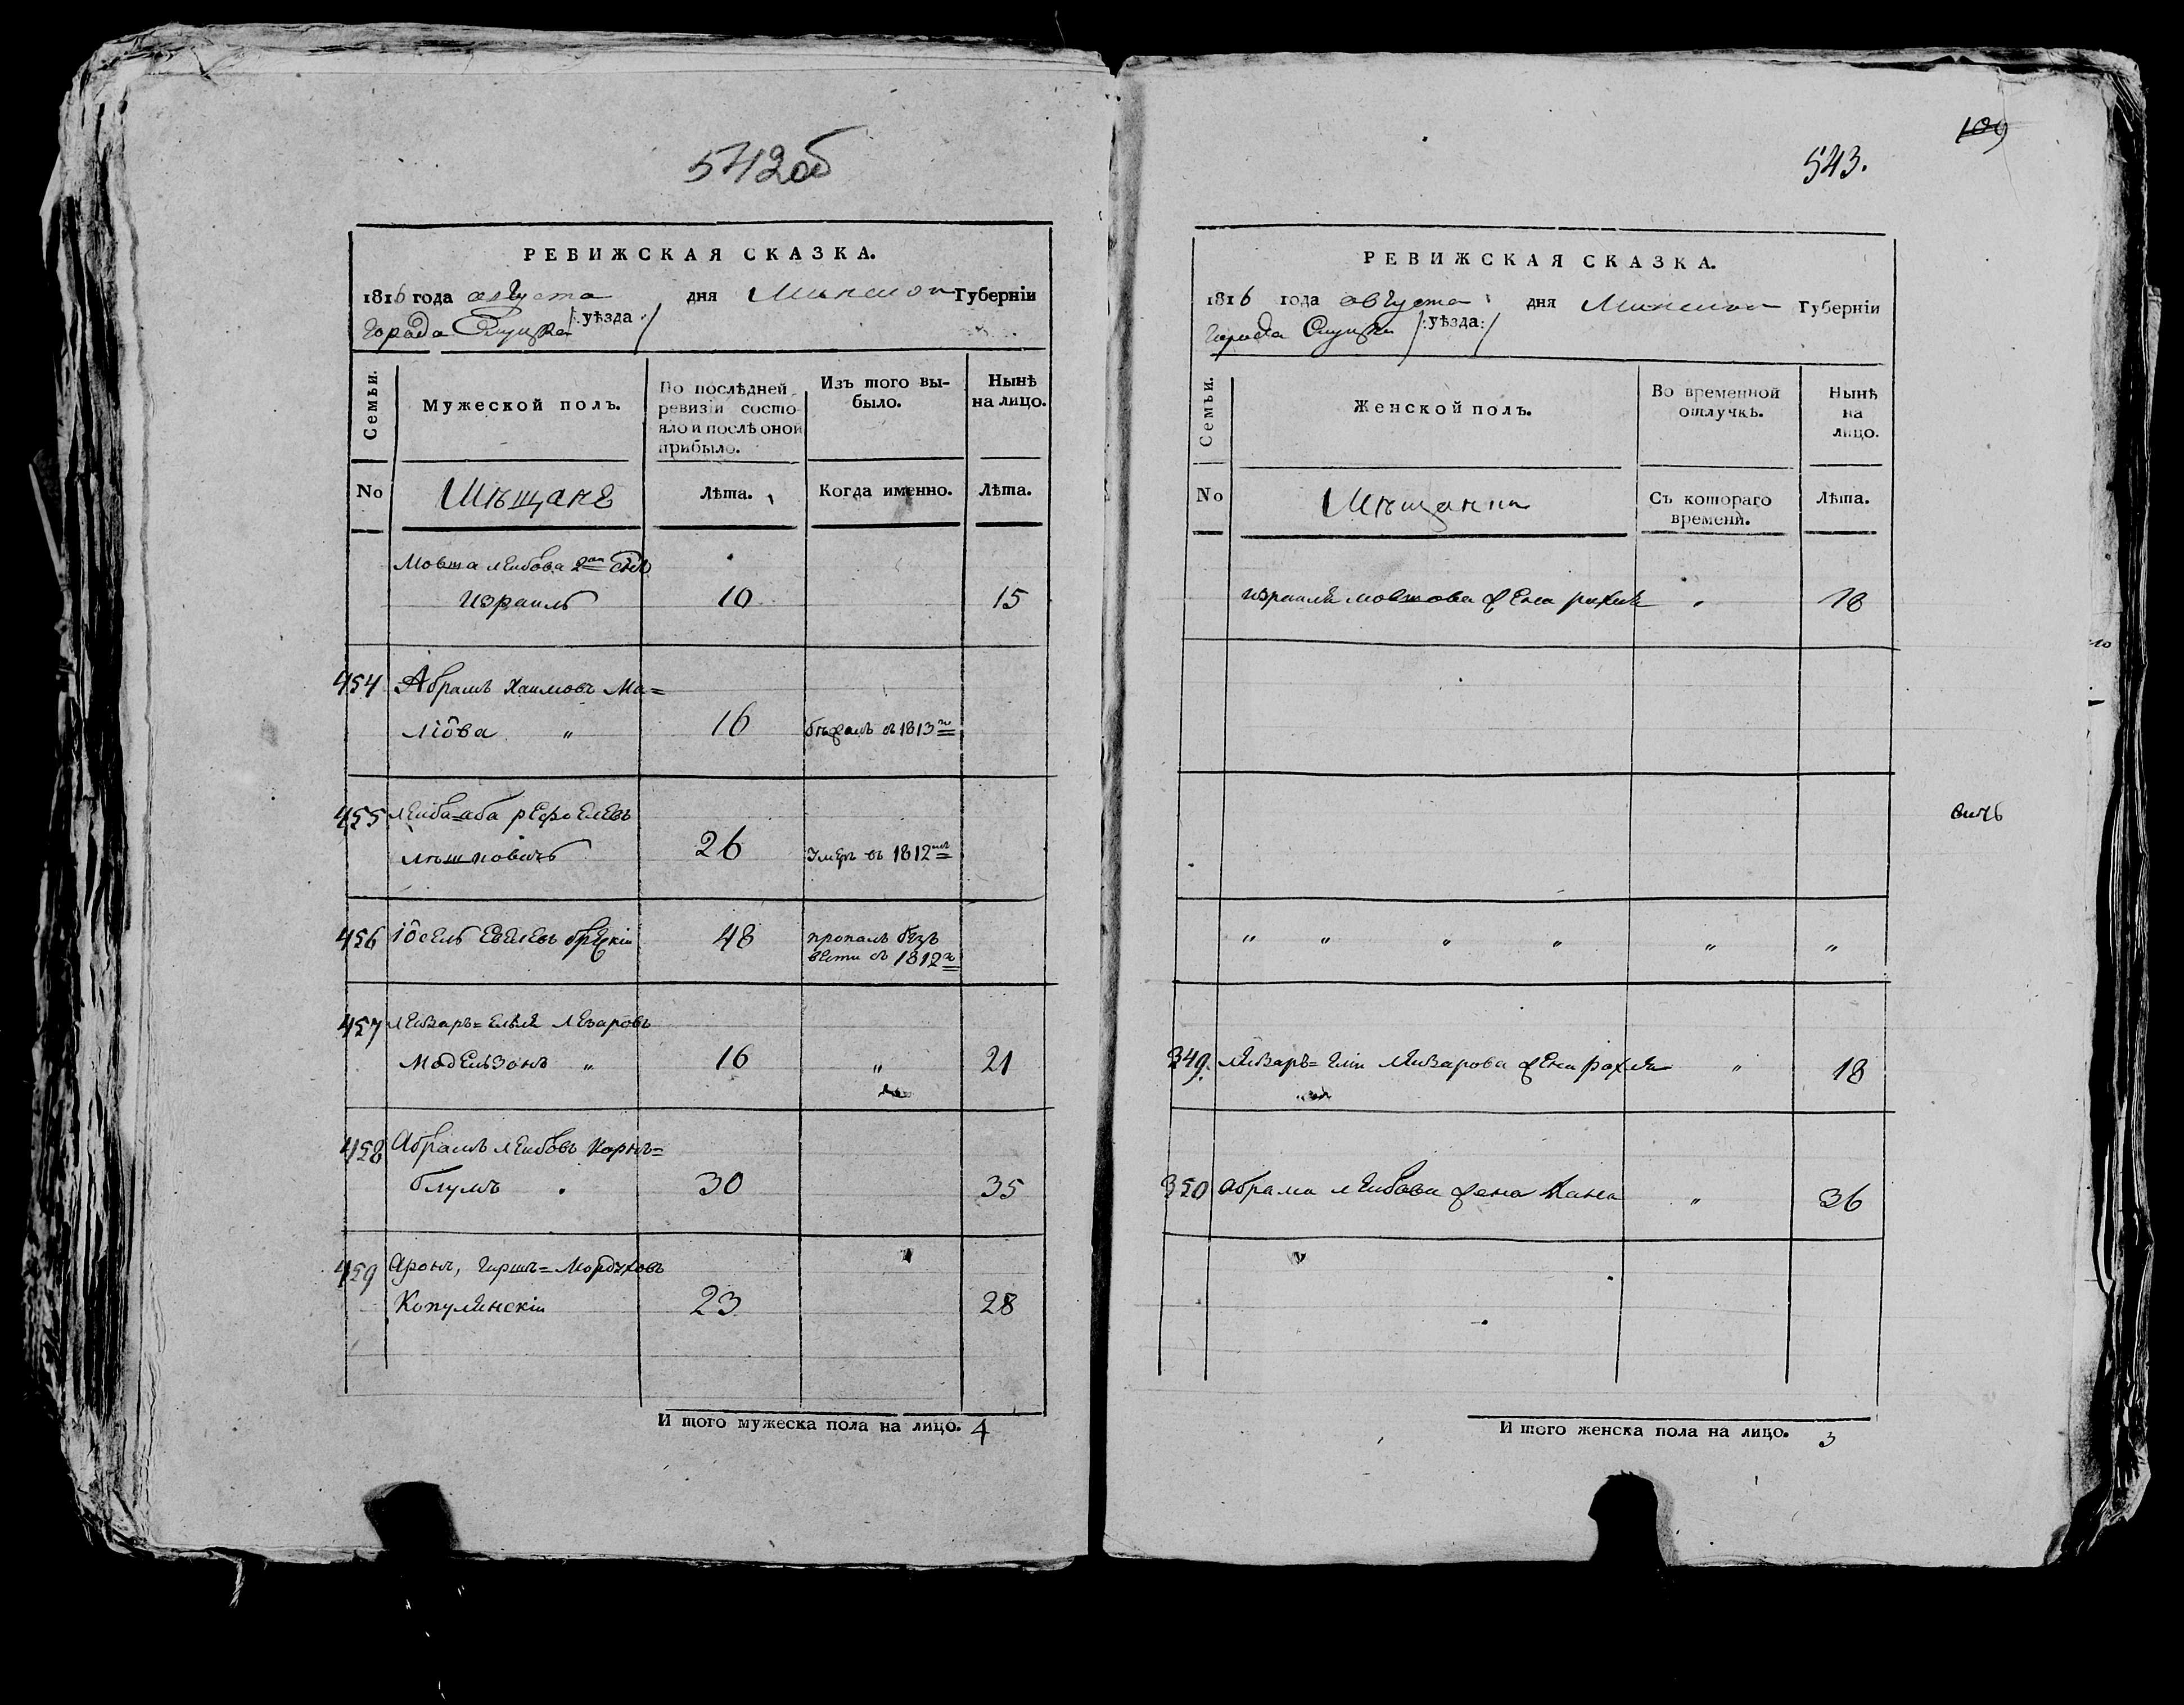 542об
РЕВИЖСКАЯ СКАЗКА.
1816 года августа дня Минской Губерніи
города Слуцка /:уѣзда:/
Семьи. Мужеской полъ. По послѣдней ревизіи состояло и послѣ оной прибыло. Изъ того выбыло. Нынѣ на лицо.
No Мѣщане Лѣта. Когда именно. Лѣта.
Мовша Лейбова 2й сынъ
Израиль 10 15
454 Абрамъ Хаимовъ Ма=
ліова " 16 бѣжалъ въ 1813го
455 Лейба=аба рефоелевъ
26 умеръ въ 1812мъ
456 Іосель евелевъ 48 пропалъ безъ
вести въ 1812го
457 Лейзаръ=елье Лезаровъ
Модельзонъ " 16 " 21
458 Абрамъ Лейбовъ Корнъ=
блумъ 30 35
459 Аронъ, гиршъ=Мордуховъ
Копулянскій 23 28
И того мужеска пола на лицо. 4
109
543.
РЕВИЖСКАЯ СКАЗКА.
1816 года августа дня Минской Губерніи
города Слуцка /:уѣзда:/
Семьи. Женской полъ. Во временной отлучкѣ. Нынѣ на лицо.
No Мѣщанки Съ котораго времени. Лѣта.
израиля мовшова жена рахиля " 18
" " " " " "
349. Лейзаръ=елі Лейзарова жена рохля " 18
350 абрама лейбова жена Хана " 36
И того женска пола на лицо. 3
вичъ